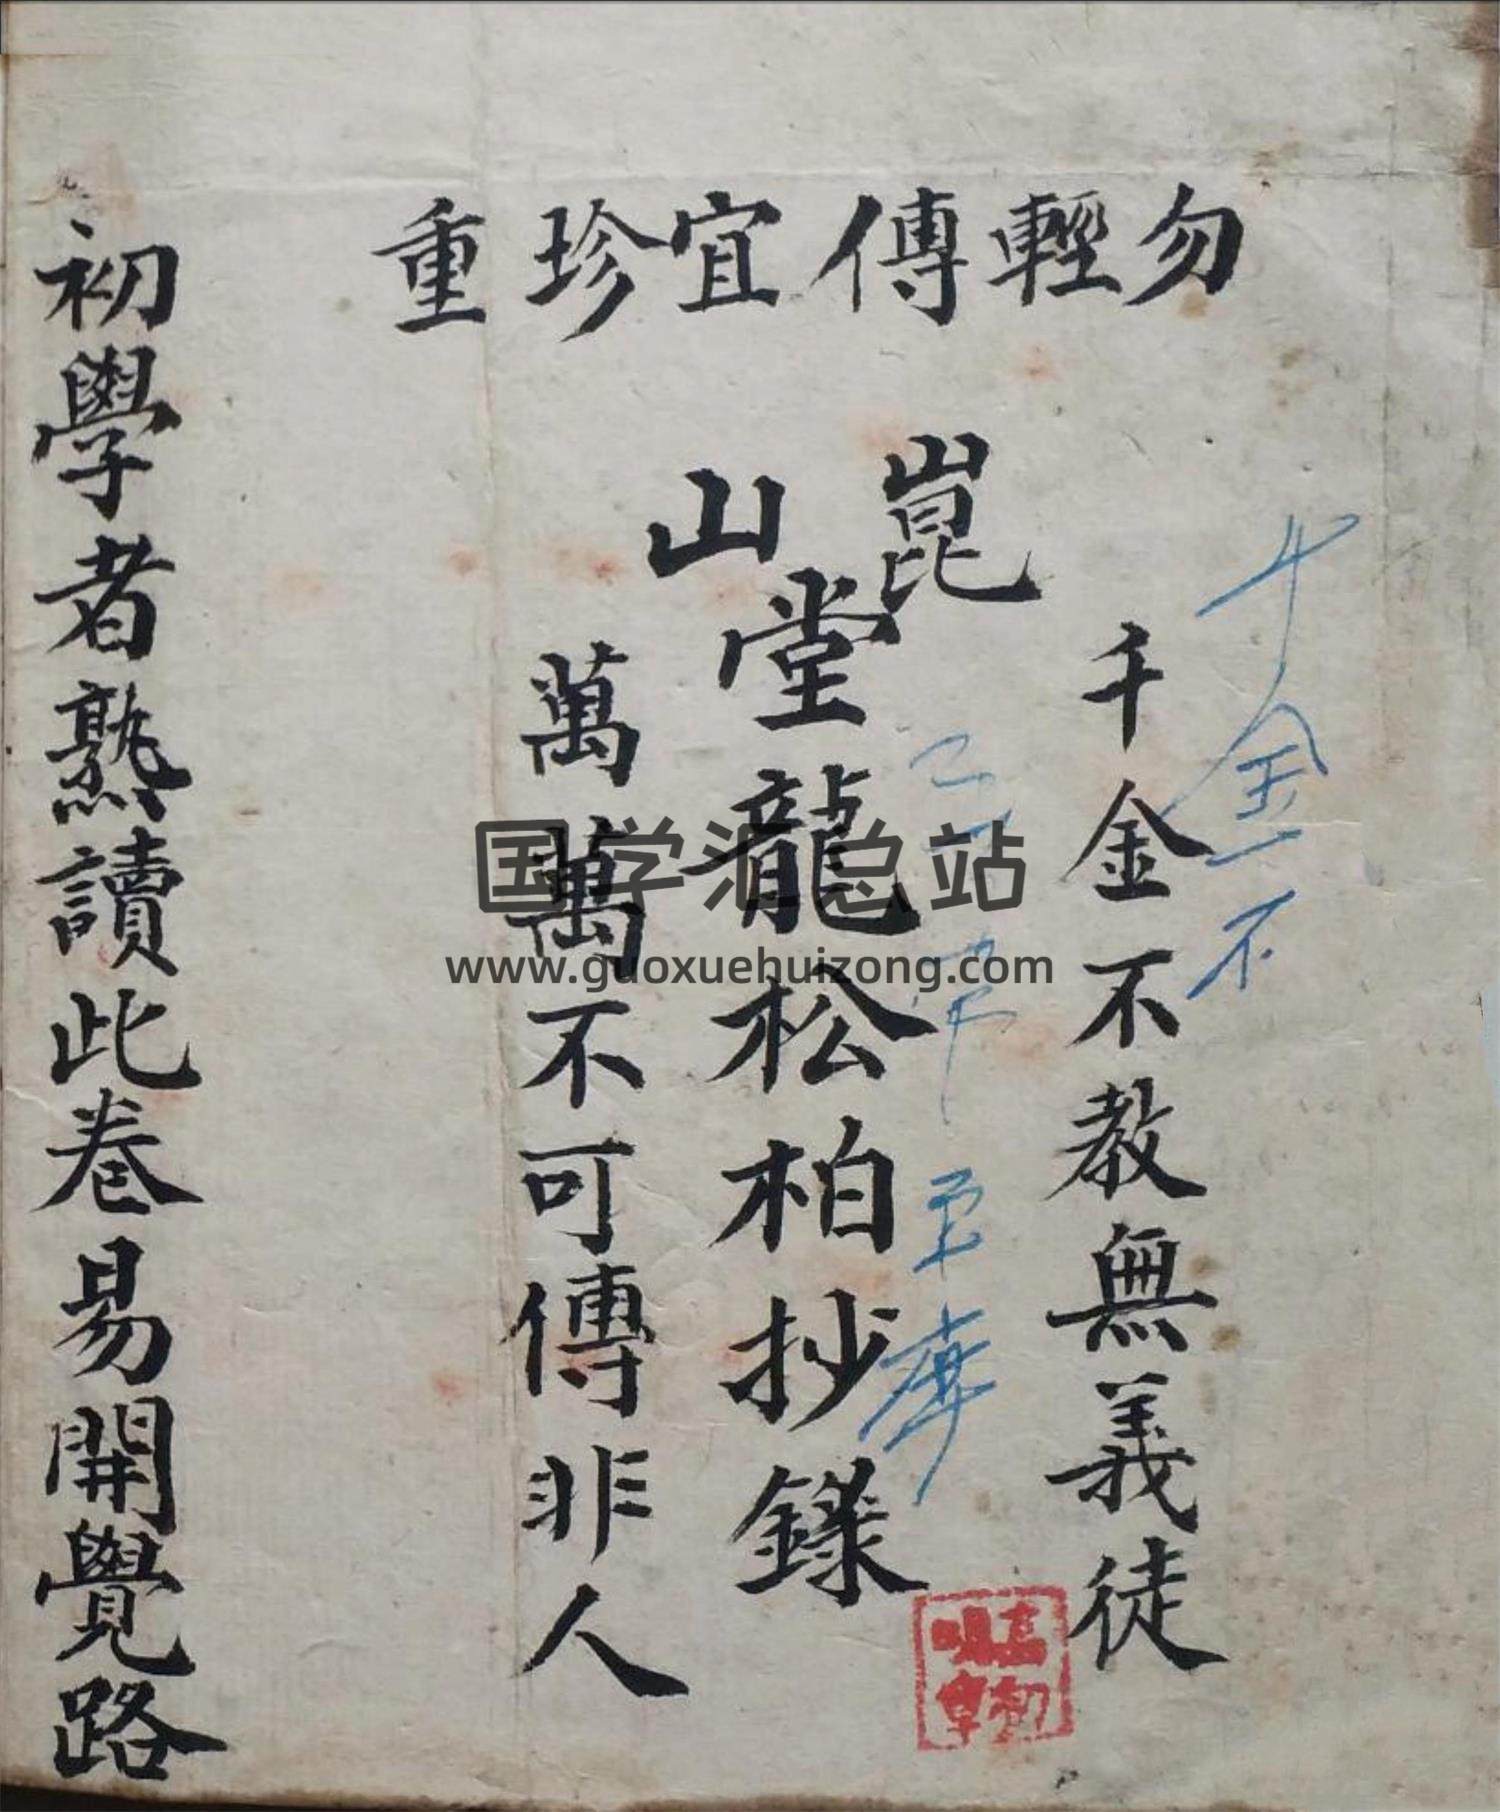 勿輕傳宜珍重
千金不教無義徒
崑山堂龍松柏抄錄
萬萬不可傳非人
初學者熟讀此卷易開覺路
千金不
国学汇总站
www.guoxuehuizong.com